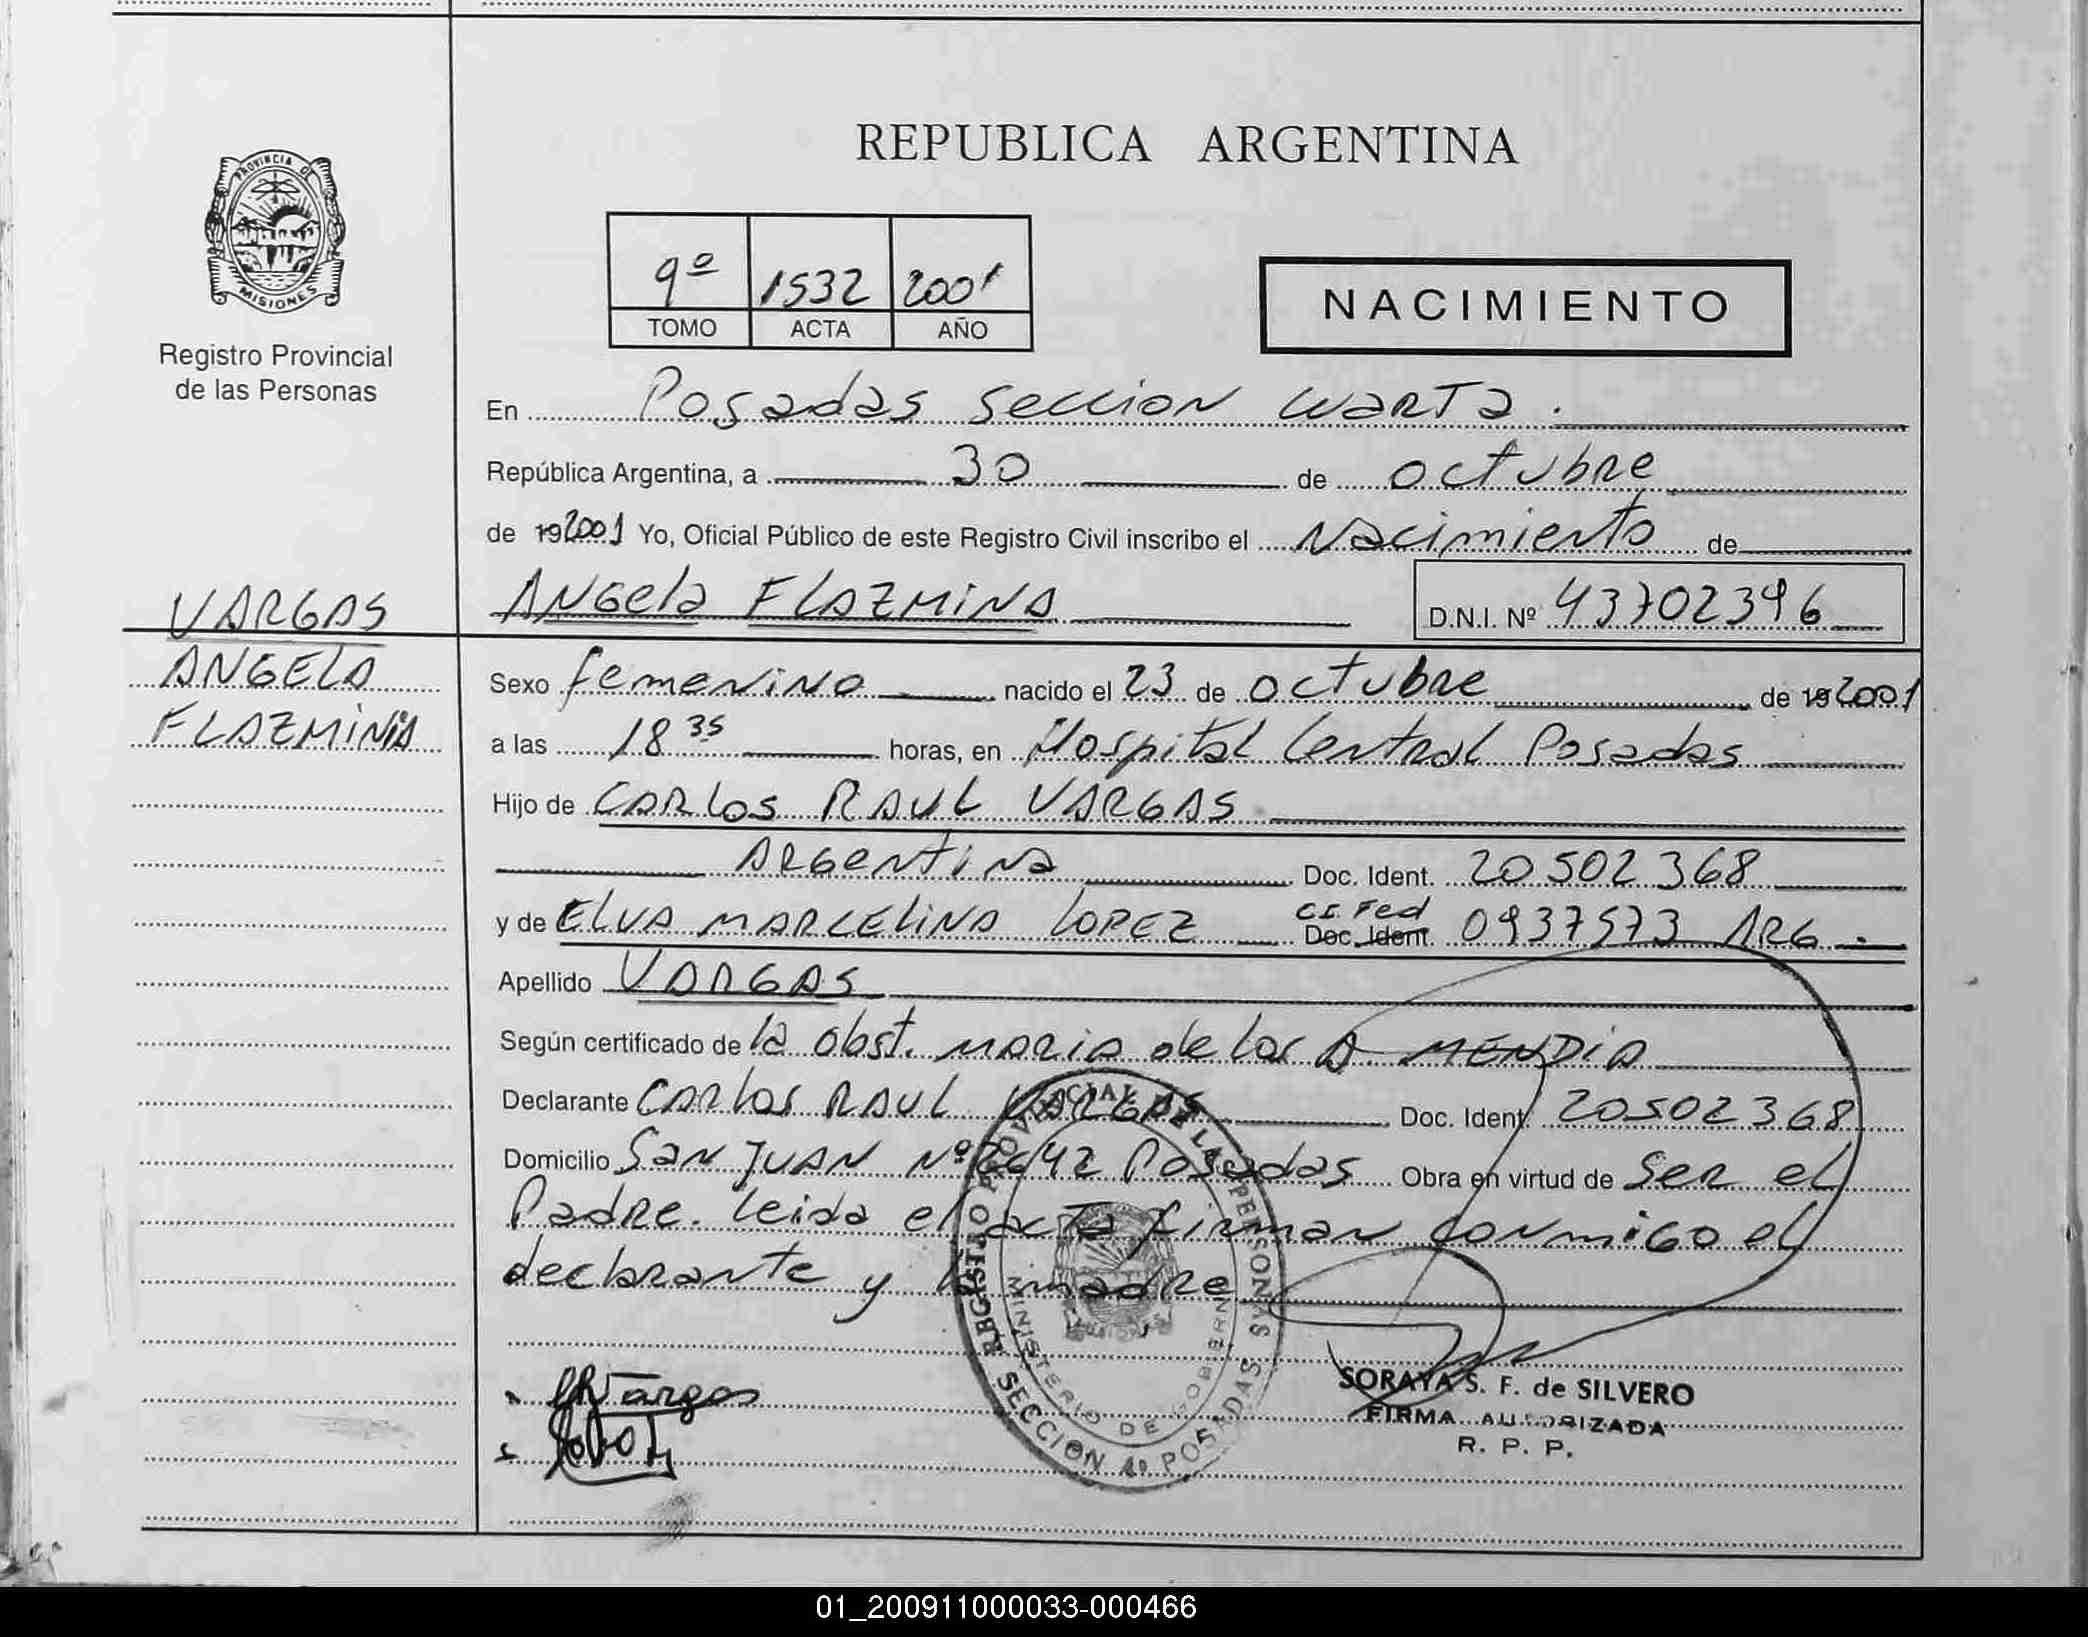 REPUBLICA ARGENTINA
PROVINCIA DE
MISIONES
Registro Provincial
de las Personas
9º 1532 2001
TOMO ACTA AÑO
NACIMIENTO
En Posadas seccion cuarta.
República Argentina, a 30 de octubre
de 192001 Yo, Oficial Público de este Registro Civil inscribo el Nacimiento de
Angela FLAZMINA D.N.I. Nº 43702396
VARGAS
ANGELA
FLAZMINIA
Sexo femenino nacido el 23 de octubre de 192001
a las 18 35 horas, en Hospital Central Posadas
Hijo de CARLOS RAUL VARGAS
Argentina Doc. Ident. 20502368
y de ELVA MARCELINA LOPEZ C.I. Fed Doc. Ident. 0937573 ARG.
Apellido VARGAS
Según certificado de la obst. Maria de los A MENDIA
Declarante Carlos RAUL VARGAS Doc. Ident. 20502368
Domicilio San JUAN Nº 2642 Posadas Obra en virtud de ser el
Padre. leida el acta firman conmigo el
declarante y la madre
REGISTRO PROVINCIAL DE LAS PERSONAS
MINISTERIO DE GOBIERNO
SECCION 4º POSADAS
Vargas
SORAYA S. F. de SILVERO
FIRMA AUTORIZADA
R. P. P.
01_200911000033-000466